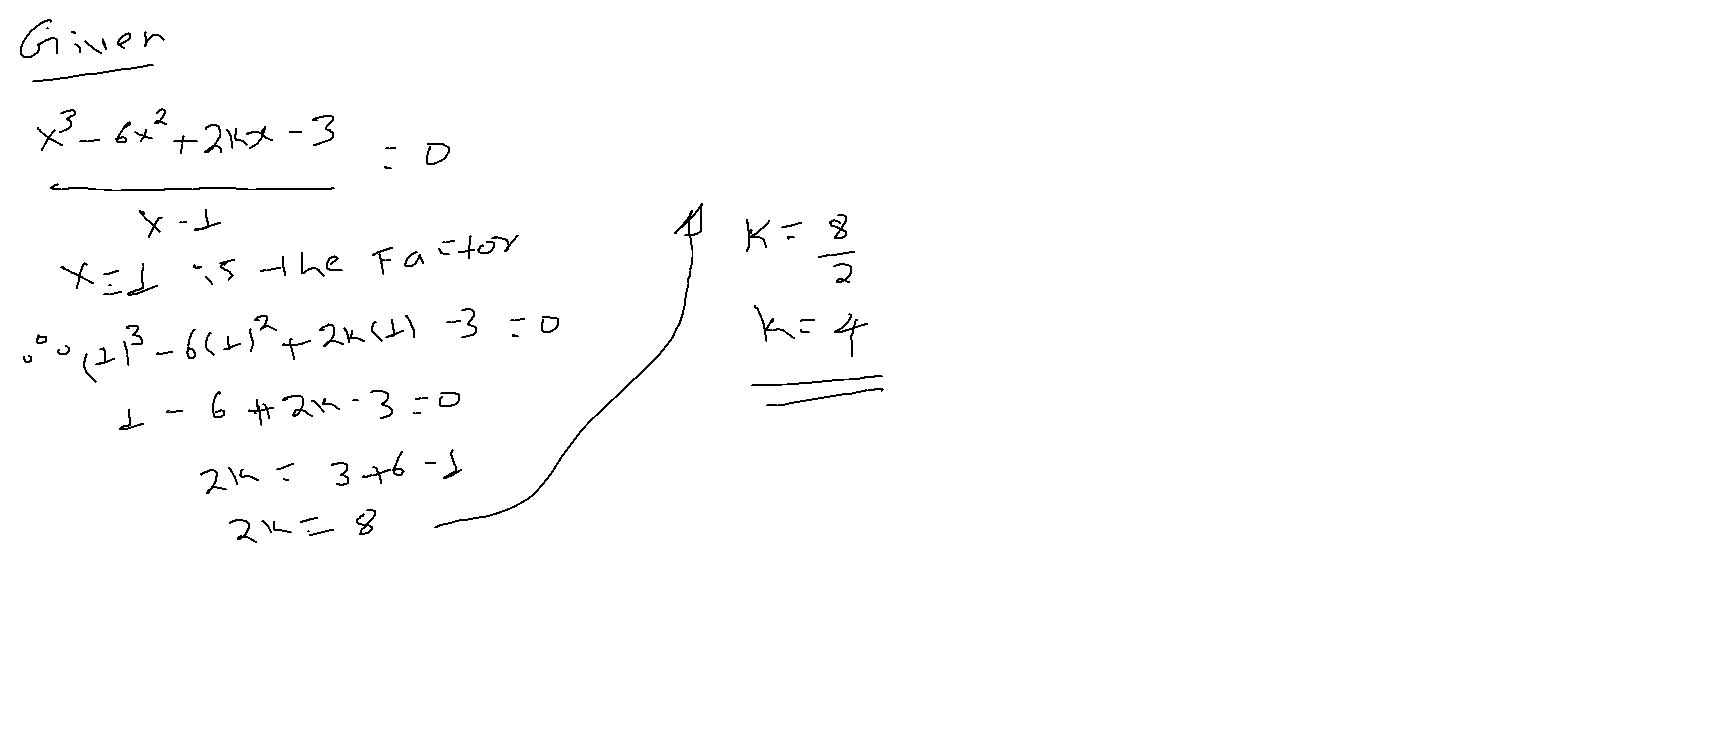 Given
x³ - 6x² + 2kx - 3 = 0
x - 1
x = 1 is the Factor
∴ (1)³ - 6(1)² + 2k(1) - 3 = 0
1 - 6 + 2k - 3 = 0
2k = 3 + 6 - 1
2k = 8
K = 8
2
k = 4